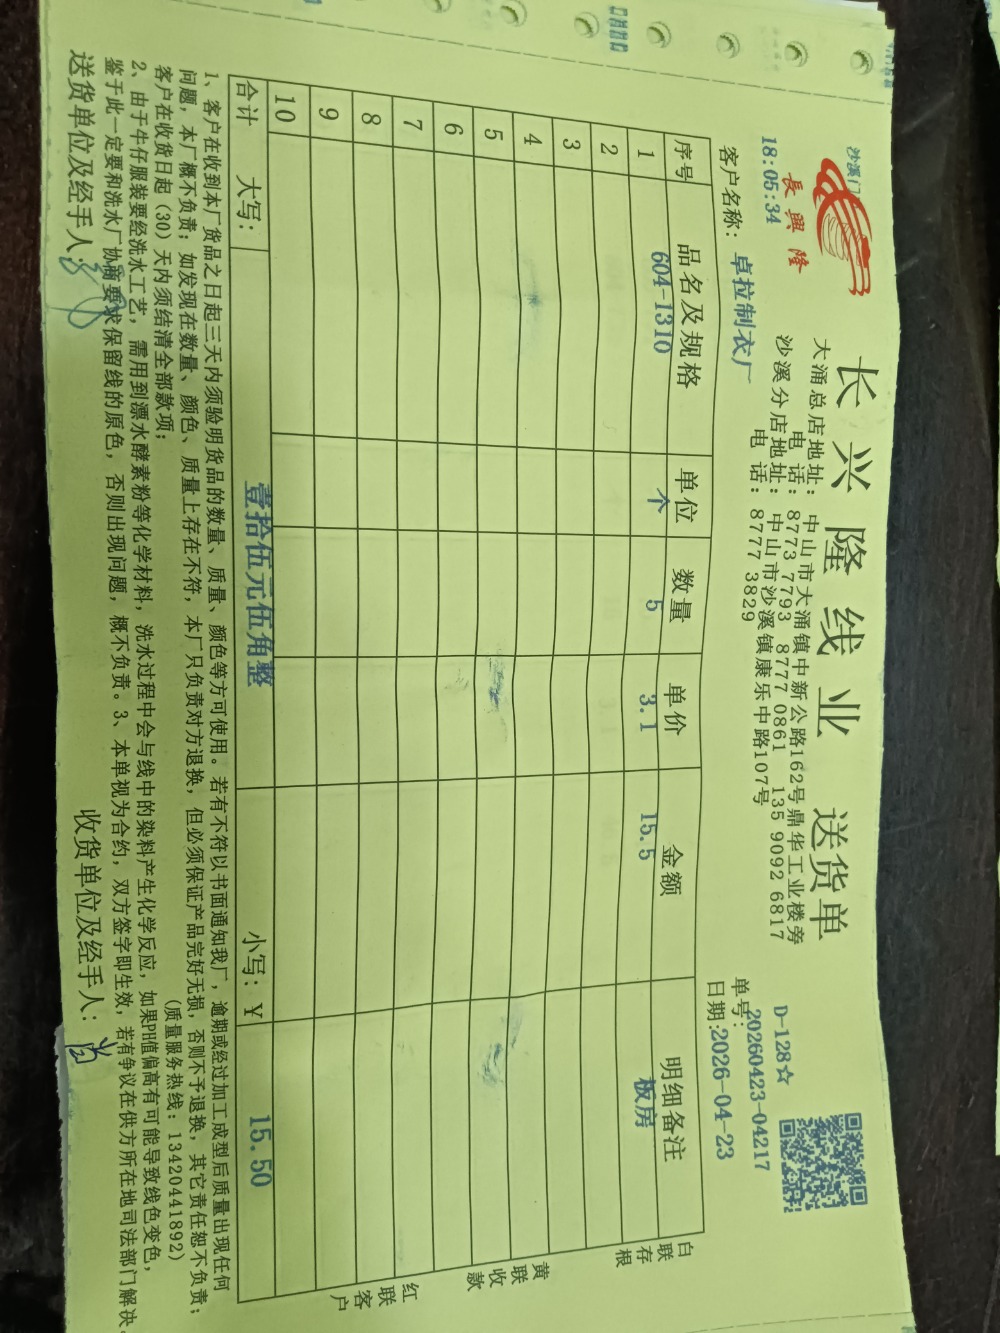 沙溪门
長興隆
18:05:34
长兴隆线业 送货单
大涌总店地址：中山市大涌镇中新公路162号鼎华工业楼旁
电话：8773 7793 8777 0861 135 9092 6817
沙溪分店地址：中山市沙溪镇康乐中路107号
电话：8777 3829
D-128☆
单号：20260423-04217
日期:2026-04-23
客户名称：卓拉制衣厂
序号 品名及规格 单位 数量 单价 金额 明细备注
1 604-1310 个 5 3.1 15.5 板房
2
3
4
5
6
7
8
9
10
合计 大写：壹拾伍元伍角整 小写：¥ 15.50
白联存根
黄联收款
红联客户
1、客户在收到本厂货品之日起三天内须验明货品的数量、质量、颜色等方可使用。若有不符以书面通知我厂，逾期或经过加工成型后质量出现任何
问题，本厂概不负责；如发现在数量、颜色、质量上存在不符，本厂只负责对方退换，但必须保证产品完好无损，否则不予退换，其它责任恕不负责；
客户在收货日起（30）天内须结清全部款项； （质量服务热线：13420441892）
2、由于牛仔服装要经洗水工艺，需用到漂水酵素粉等化学材料，洗水过程中会与线中的染料产生化学反应，如果PH值偏高有可能导致线色变色，
鉴于此一定要和洗水厂协商要求保留线的原色，否则出现问题，概不负责。3、本单视为合约，双方签字即生效，若有争议在供方所在地司法部门解决。
送货单位及经手人： 收货单位及经手人：